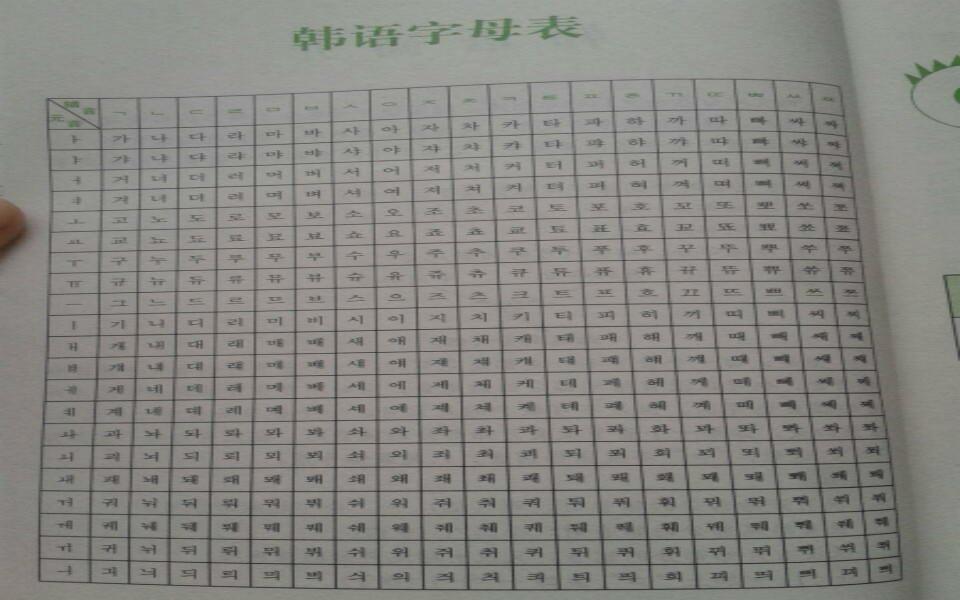 韩语字母表
辅音
元音
ㄱ ㄴ ㄷ ㄹ ㅁ ㅂ ㅅ ㅇ ㅈ ㅊ ㅋ ㅌ ㅍ ㅎ ㄲ ㄸ ㅃ ㅆ ㅉ
ㅏ 가 나 다 라 마 바 사 아 자 차 카 타 파 하 까 따 빠 싸 짜
ㅑ 갸 냐 랴 먀 뱌 샤 야 쟈 챠 캬 햐
ㅓ 거 너 더 러 머 버 서 어 저 처 커 터 퍼 허 꺼 떠 뻐 써 쩌
ㅕ 겨 녀 려 며 벼 여 혀 껴
ㅗ 고 노 도 로 모 보 소 오 조 초 코 토 포 호 꼬 또 뽀 쏘 쪼
ㅛ 교 뇨 됴 료 묘 뵤 쇼 요 죠 쵸 쿄 툐 표 효
ㅜ 구 누 두 루 무 부 수 우 주 추 쿠 투 푸 후 꾸 뚜 뿌 쑤 쭈
ㅠ 규 뉴 듀 류 뮤 뷰 슈 유 쥬 츄 큐 듀 퓨 휴 뀨 뜌 쀼 쓔 쮸
ㅡ 그 느 드 르 므 브 스 으 즈 츠 크 트 프 호 끄 뜨 쁘 쓰 쯔
ㅣ 기 니 디 리 미 비 시 이 지 치 키 티 피 히 끼 띠 삐 씨 찌
ㅐ 개 내 대 래 매 배 새 애 재 채 캐 태 패 해 깨 때 빼 쌔 째
ㅔ 게 네 데 레 메 베 세 에 제 체 케 테 페 헤 께 떼 뻬 쎄 쩨
ㅖ 계 녜 례 셰 예 혜 꼐
ㅘ 과 놔 돠 롸 뫄 봐 솨 와 좌 촤 콰 톼 퐈 화 꽈 똬 뽜 쏴 쫘
ㅚ 괴 뇌 되 뢰 뫼 뵈 쇠 외 죄 최 괴 퇴 푀 회 꾀 뙤 뾔 쐬 쬐
ㅙ 괘 놰 돼 쇄 왜 좨 쵀 쾌 퇘 홰 꽤 뙈 쫴
ㅝ 궈 눠 둬 뤄 뭐 붜 숴 워 줘 춰 쿼 퉈 풔 훠 꿔 뚸 뿨 쒀 쭤
ㅞ 궤 눼 뒈 뤠 뭬 붸 쉐 웨 줴 췌 퀘 퉤 풰 훼 꿰 뛔 쀄 쒜 쮀
ㅟ 귀 뉘 뒤 뤼 뮈 뷔 쉬 위 쥐 취 퀴 튀 퓌 휘 뀌 뛰 쀠 쒸 쮜
ㅢ 긔 늬 듸 릐 믜 븨 싀 의 즤 츼 킈 틔 픠 희 띄